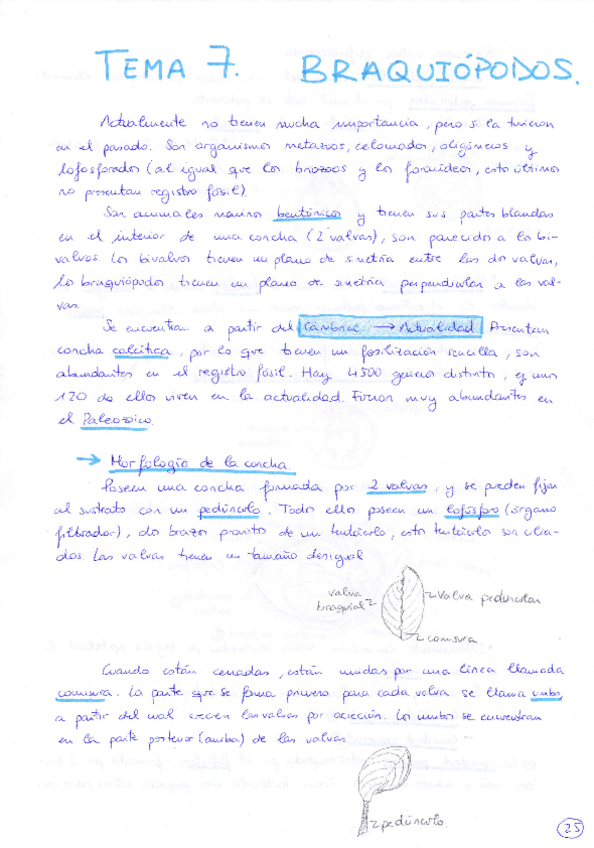 TEMA 7. BRAQUIÓPODOS.
Actualmente no tienen mucha importancia, pero si la tuvieron
en el pasado. Son organismos metazoos, celomados, oligómeros y
lofosforados (al igual que los briozoos y los foronídeos, estos últimos
no presentan registro fósil).
Son animales marinos bentónicos y tienen sus partes blandas
en el interior de una concha (2 valvas), son parecidos a los bi-
valvos. Los bivalvos tienen un plano de simetría entre las dos valvas,
los braquiópodos tienen un plano de simetría perpendicular a las val-
vas.
Se encuentran a partir del Cámbrico → Actualidad. Presentan
concha calcítica, por lo que tienen un fosilización sencilla, son
abundantes en el registro fósil. Hay 4500 géneros distintos, y unos
120 de ellos viven en la actualidad. Fueron muy abundantes en
el Paleozoico.
→ Morfología de la concha.
Poseen una concha formada por 2 valvas, y se pueden fijar
al sustrato con un pedúnculo. Todos ellos poseen un lofósforo (órgano
filtrador), dos brazos provistos de un tentáculo, estos tentáculos son cilia-
dos. Las valvas tienen un tamaño desigual
valva
braquial
Valva peduncular
comisura
Cuando están cerradas, están unidas por una línea llamada
comisura. La parte que se forma primero para cada valva se llama umbo
a partir del cual crecen las valvas por acreción. Los umbos se encuentran
en la parte posterior (arriba) de las valvas.
pedúnculo.
25